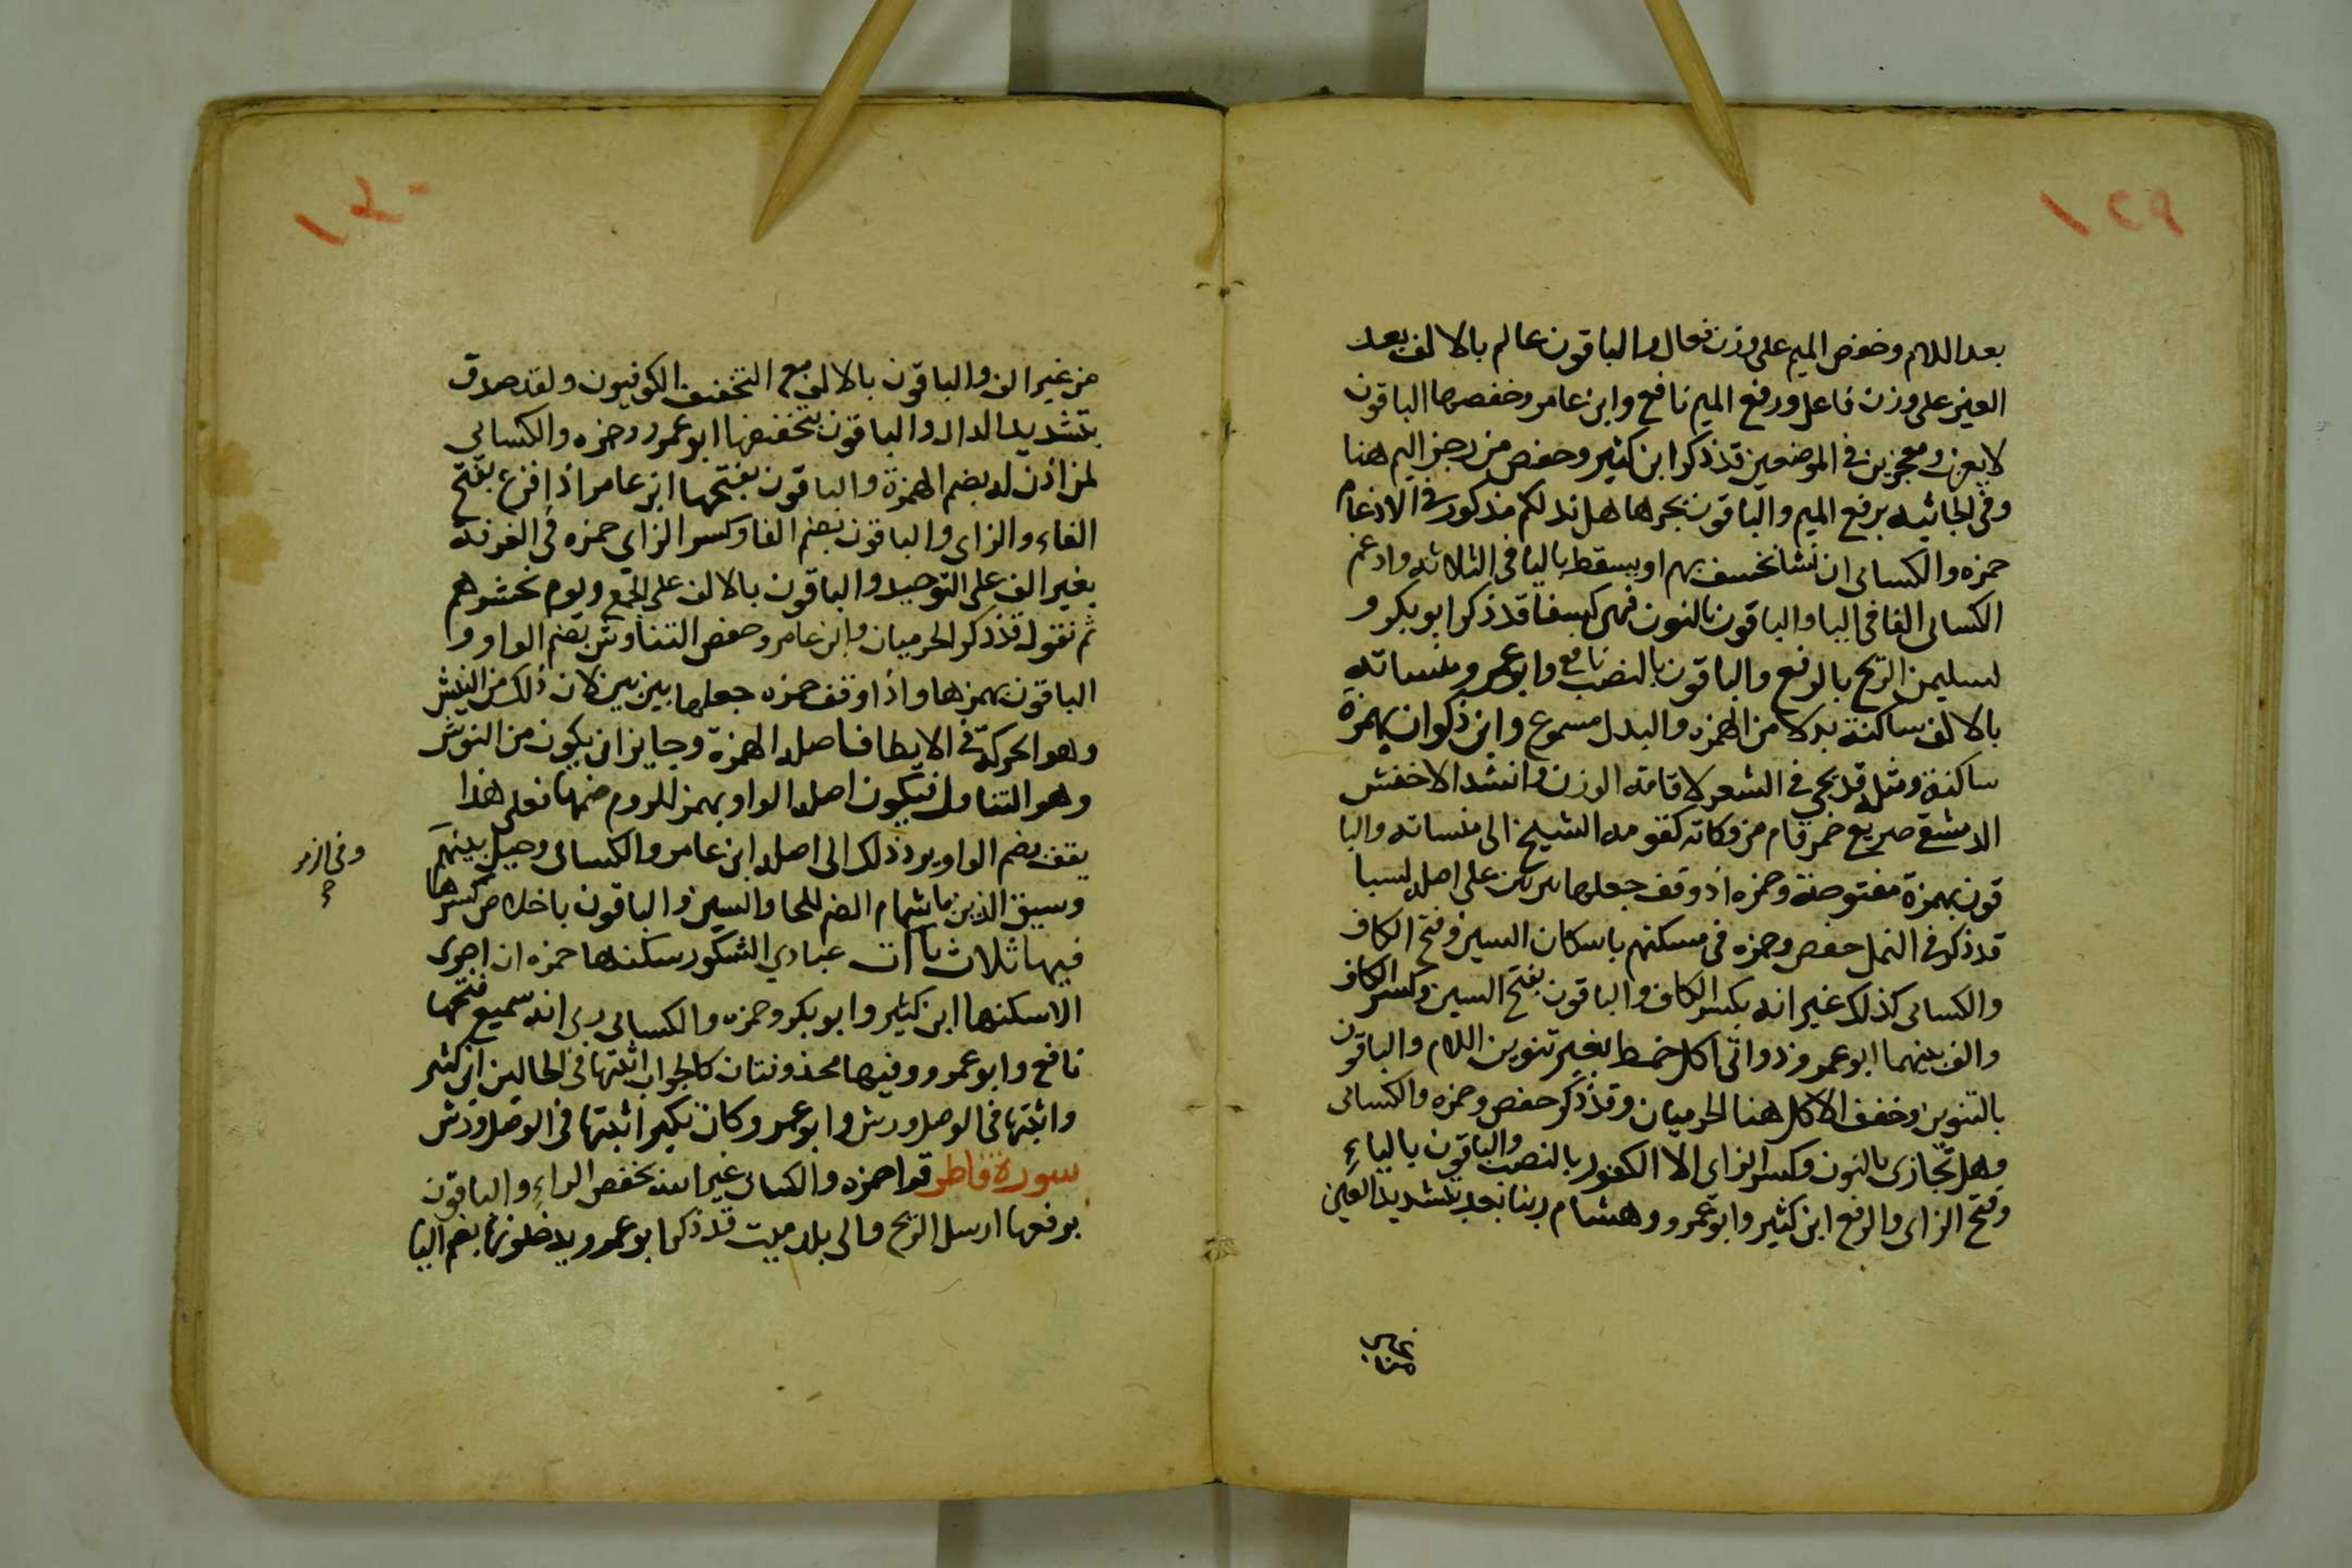 ١٢٩
بعد اللام وخفض الميم على وزن فعال والباقون عالم بالالف بعد
العين على وزن فاعل ورفع الميم نافع وابن عامر وخفضها الباقون
لا يعزب ومعجزين في الموضعين قد ذكر ابن كثير وحفص من رجز اليم هنا
وفي الجاثيه برفع الميم والباقون بجرها هل ندلكم مذكور في الادغام
حمزه والكسائى ان نشا نخسف بهم او يسقط باليا فى الثلاثه وادغم
الكسائى الفا فى البا والباقون بالنون فهن كسفا قد ذكر ابو بكر و
لسليمن الريح بالرفع والباقون بالنصب نافع وابو عمرو منساته
بالالف ساكنة بدلا من الهمزه والبدل مسموع وابن ذكوان بهمزة
ساكنة ومثله قد يجى في الشعر لاقامة الوزن وانشد الاخفش
الدمشقى صريع خمر قام من وكاته كقومه الشيخ الى منساته والبا
قون بهمزة مفتوحة وحمزه اذ وقف جعلها بين بين على اصله لسبا
قد ذكر في النمل حفص وحمزه فى مسكنهم باسكان السين وفتح الكاف
والكسائى كذلك غير انه بكسر الكاف والباقون بفتح السين وكسر الكاف
والف بينهما ابو عمرو ذواتى اكل خمط بغير تنوين اللام والباقون
بالتنوين وخفف الاكل هنا الحرميان وقد ذكر حفص وحمزه والكسائى
وهل نجازى بالنون وكسر الزاى الا الكفور بالنصب والباقون بالياءِ
وفتح الزاى والرفع ابن كثير وابو عمرو وهشام ربنا بعد بتشديد العين
من
١٣٠
من غير الف والباقون بالالف مع التخفيف الكوفيون ولقد صدق
بتشديد الدال والباقون بتخفيفها ابو عمرو وحمزه والكسائى
لمن اذن له بضم الهمزة والباقون بفتحها ابن عامر اذا فزع بفتح
الفاء والزاى والباقون بضم الفا وكسر الزاى حمزه فى الغرفة
بغير الف على التوحيد والباقون بالالف على الجمع ويوم نحشرهم
ثم نقول قد ذكر الحرميان وابن عامر وحفص التناوش بضم الواو و
الباقون بهمزها واذا وقف حمزه جعلها بين بين لان ذلك من النئش
وهو الحركة فى الابطا فاصله الهمزة وجايز ان يكون من النوش
وهو التناول فيكون اصله الواو بهمز للزوم ضمها فعلى هذا
يقف بضم الواو يرد ذلك الى اصله ابن عامر والكسائى وحيل بينهم
وسيق الذين باشمام الضم للحا والسين والباقون باخلاص كسرها
وفى الزمر
فيها ثلاث يآآت عبادي الشكور سكنها حمزه ان اجرى
الا سكنها ابن كثير وابو بكر وحمزه والكسائى ربى انه سميع فتحها
نافع وابو عمرو وفيها محذوفتان كالجواب اثبتها فى الحالين ابن كثير
واثبتها فى الوصل ورش وابو عمرو وكان نكير اثبتها فى الوصل ورش
سورة فاطر قرا حمزه والكسائى غير الله بخفض الراءِ والباقون
برفعها ارسل الريح والى بلد ميت قد ذكر ابو عمرو يدخلونها بضم اليا